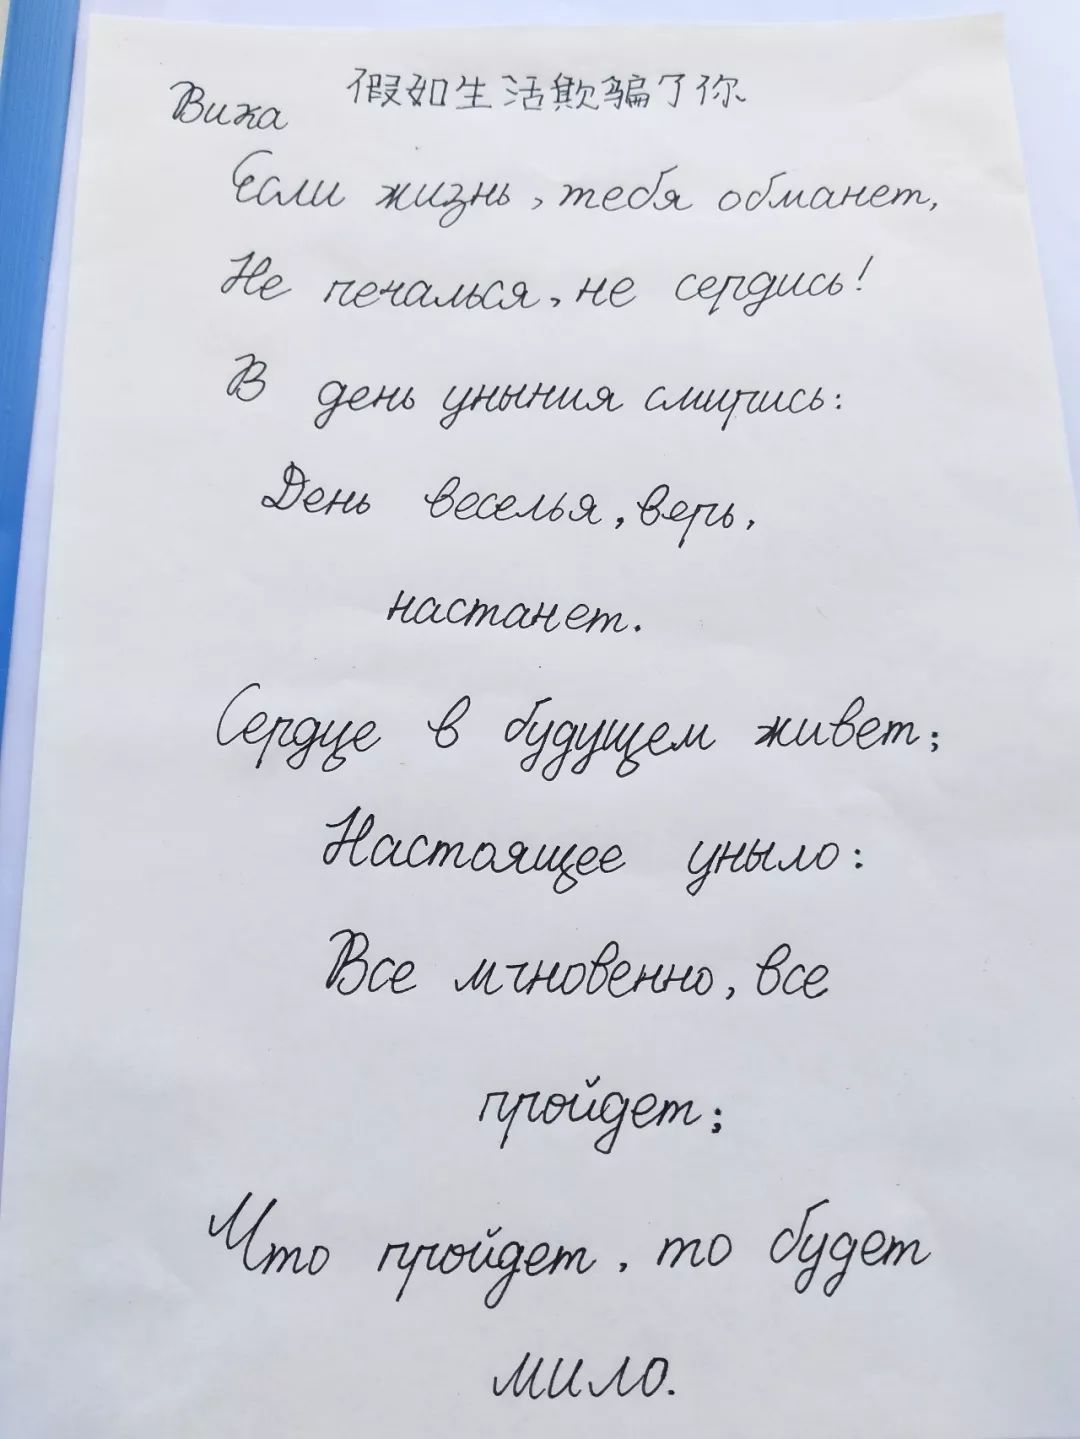 假如生活欺骗了你
Вика
Если жизнь, тебя обманет,
Не печалься, не сердись!
В день уныния смирись:
День веселья, верь,
настанет.
Сердце в будущем живет;
Настоящее уныло:
Все мгновенно, все
пройдет;
Что пройдет, то будет
мило.